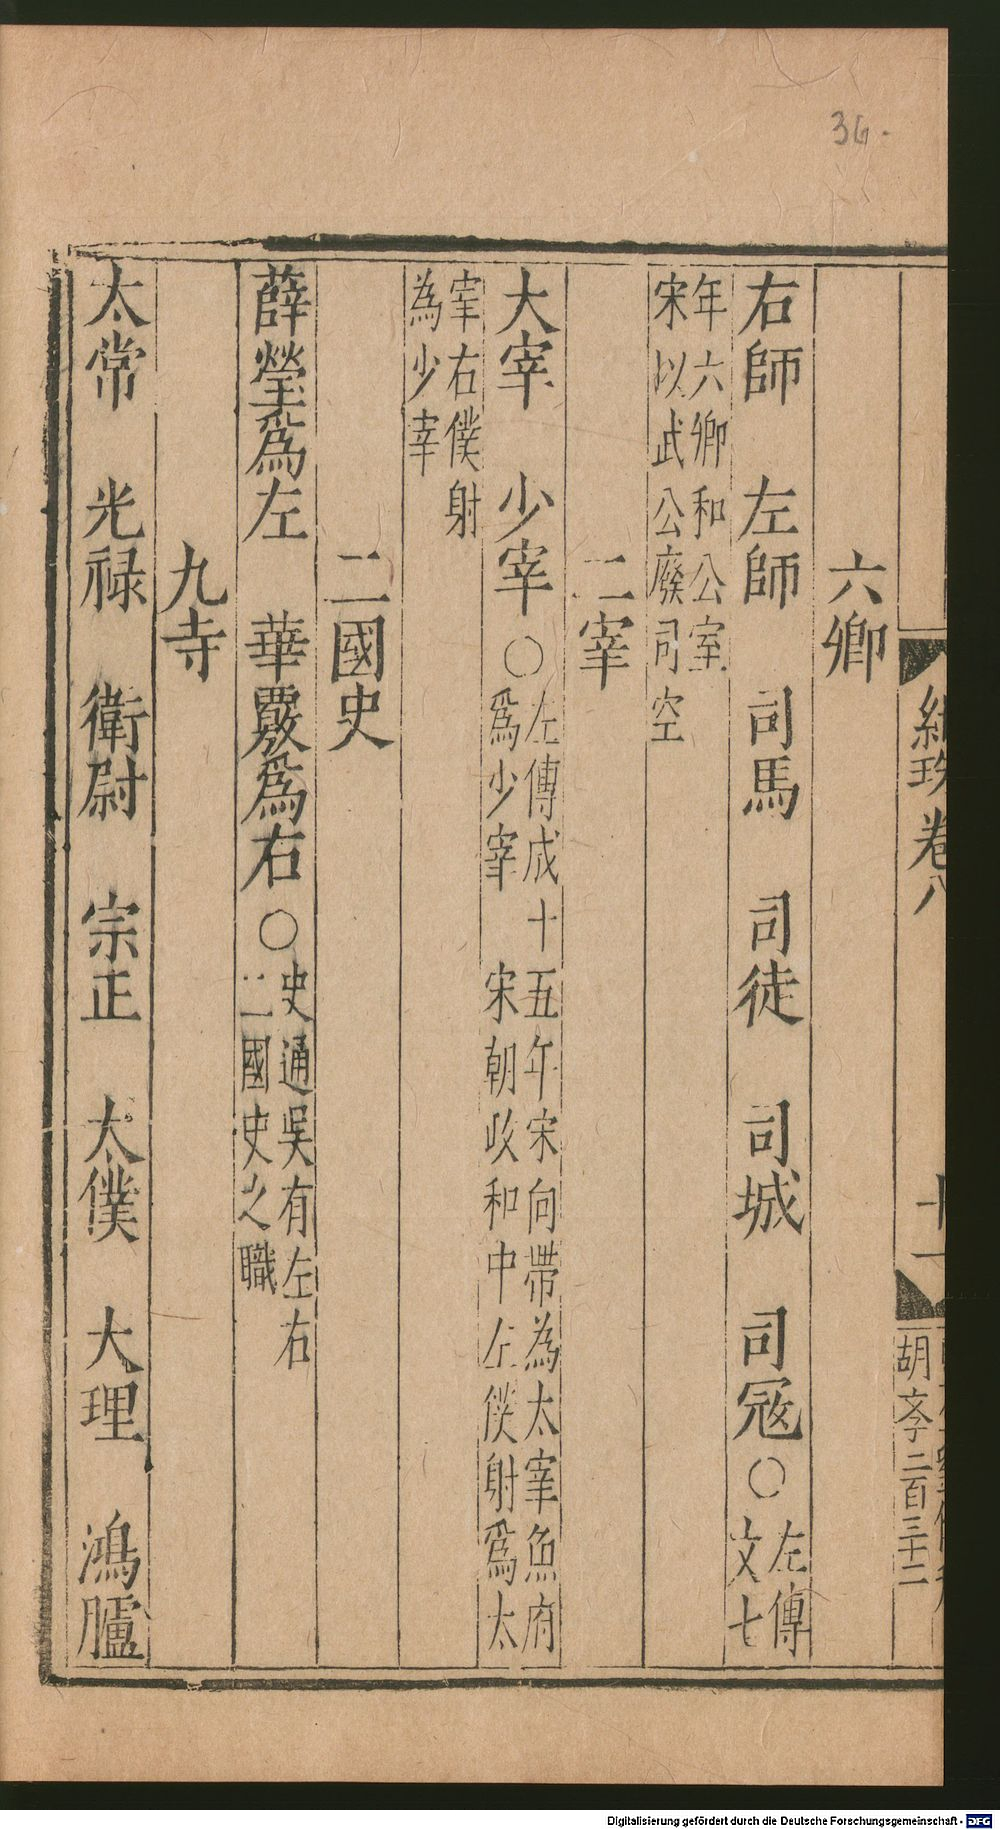 36
卷八
十一
胡𡥉二百三十二
六卿
右師 左師 司馬 司徒 司城 司寇○左傳
文七
年六卿和公室
宋以武公廢司空
二宰
大宰 少宰○左傳成十五年宋向帶為太宰魚府
爲少宰 宋朝政和中左僕射爲太
宰右僕射
為少宰
二國史
薛瑩爲左 華覈爲右○史通吳有左右
二國史之職
九寺
太常 光禄 衛尉 宗正 太僕 大理 鴻臚
Digitalisierung gefördert durch die Deutsche Forschungsgemeinschaft - DFG